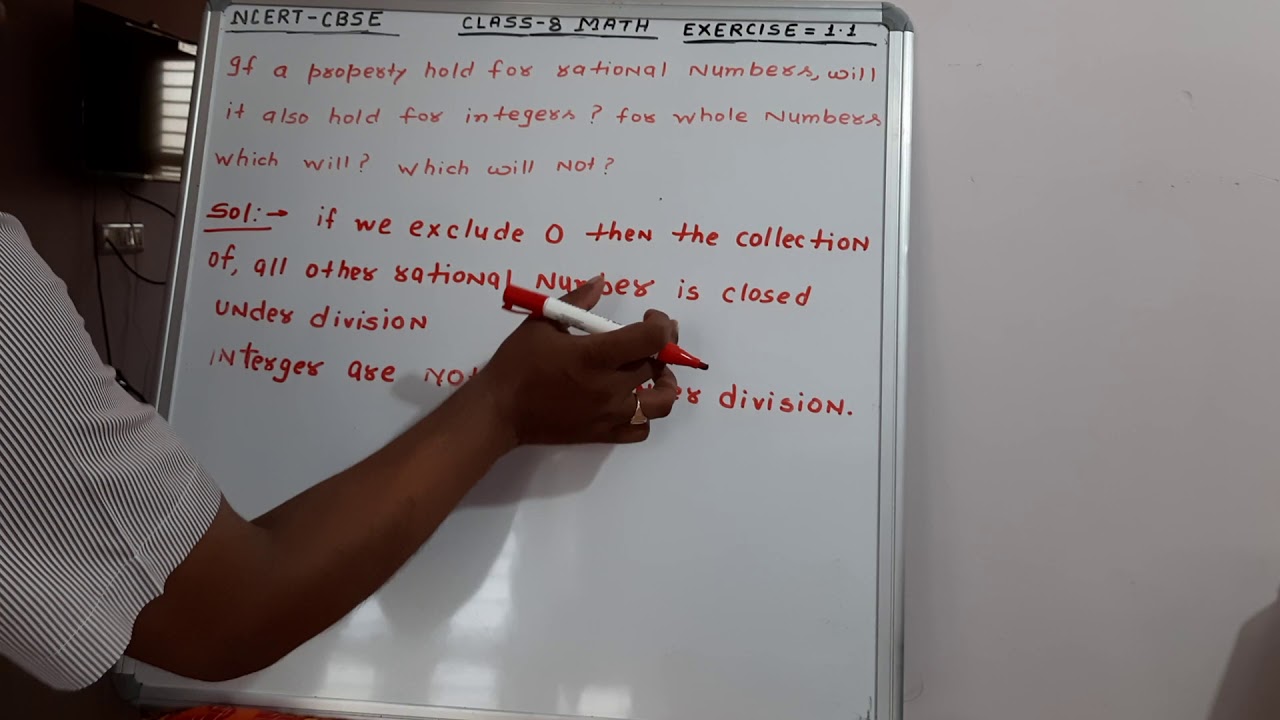 NCERT-CBSE CLASS-8 MATH EXERCISE = 1.1
If a property hold for rational Numbers, will
it also hold for integers? for whole Numbers
which will? which will Not?
Sol:→ if we exclude 0 then the collection
of, all other rational Number is closed
under division
interger are Not division.